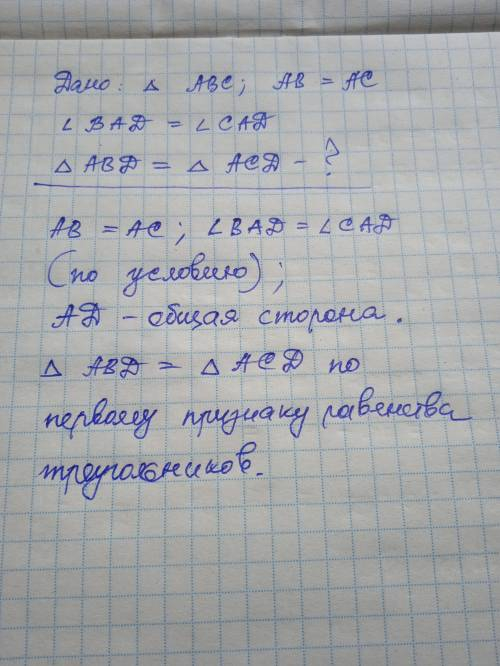 Дано: △ ABC; AB = AC
∠ BAD = ∠ CAD
△ ABD = △ ACD - ?
AB = AC; ∠ BAD = ∠ CAD
(по условию);
AD - общая сторона.
△ ABD = △ ACD по
первому признаку равенства
треугольников.